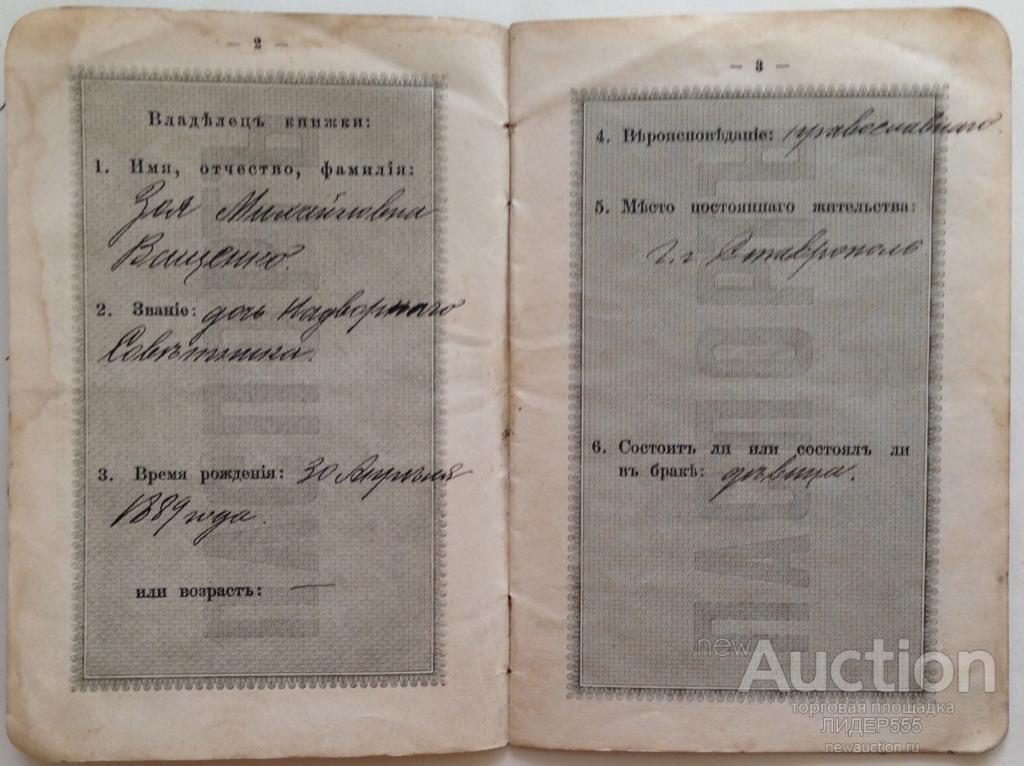 — 2 —
Владѣлецъ книжки:
1. Имя, отчество, фамилія:
Зоя Михайловна
Ващенко.
2. Званіе: дочь Надворнаго
Совѣтника.
3. Время рожденія: 30 Апрѣля
1889 года.
или возрастъ: —
— 3 —
4. Вѣроисповѣданіе: православнаго.
5. Мѣсто постояннаго жительства:
г. Ставрополь
6. Состоитъ ли или состоялъ ли
въ бракѣ: дѣвица.
ПАСПОРТЪ
newAuction
торговая площадка
ЛИДЕР555
newauction.ru